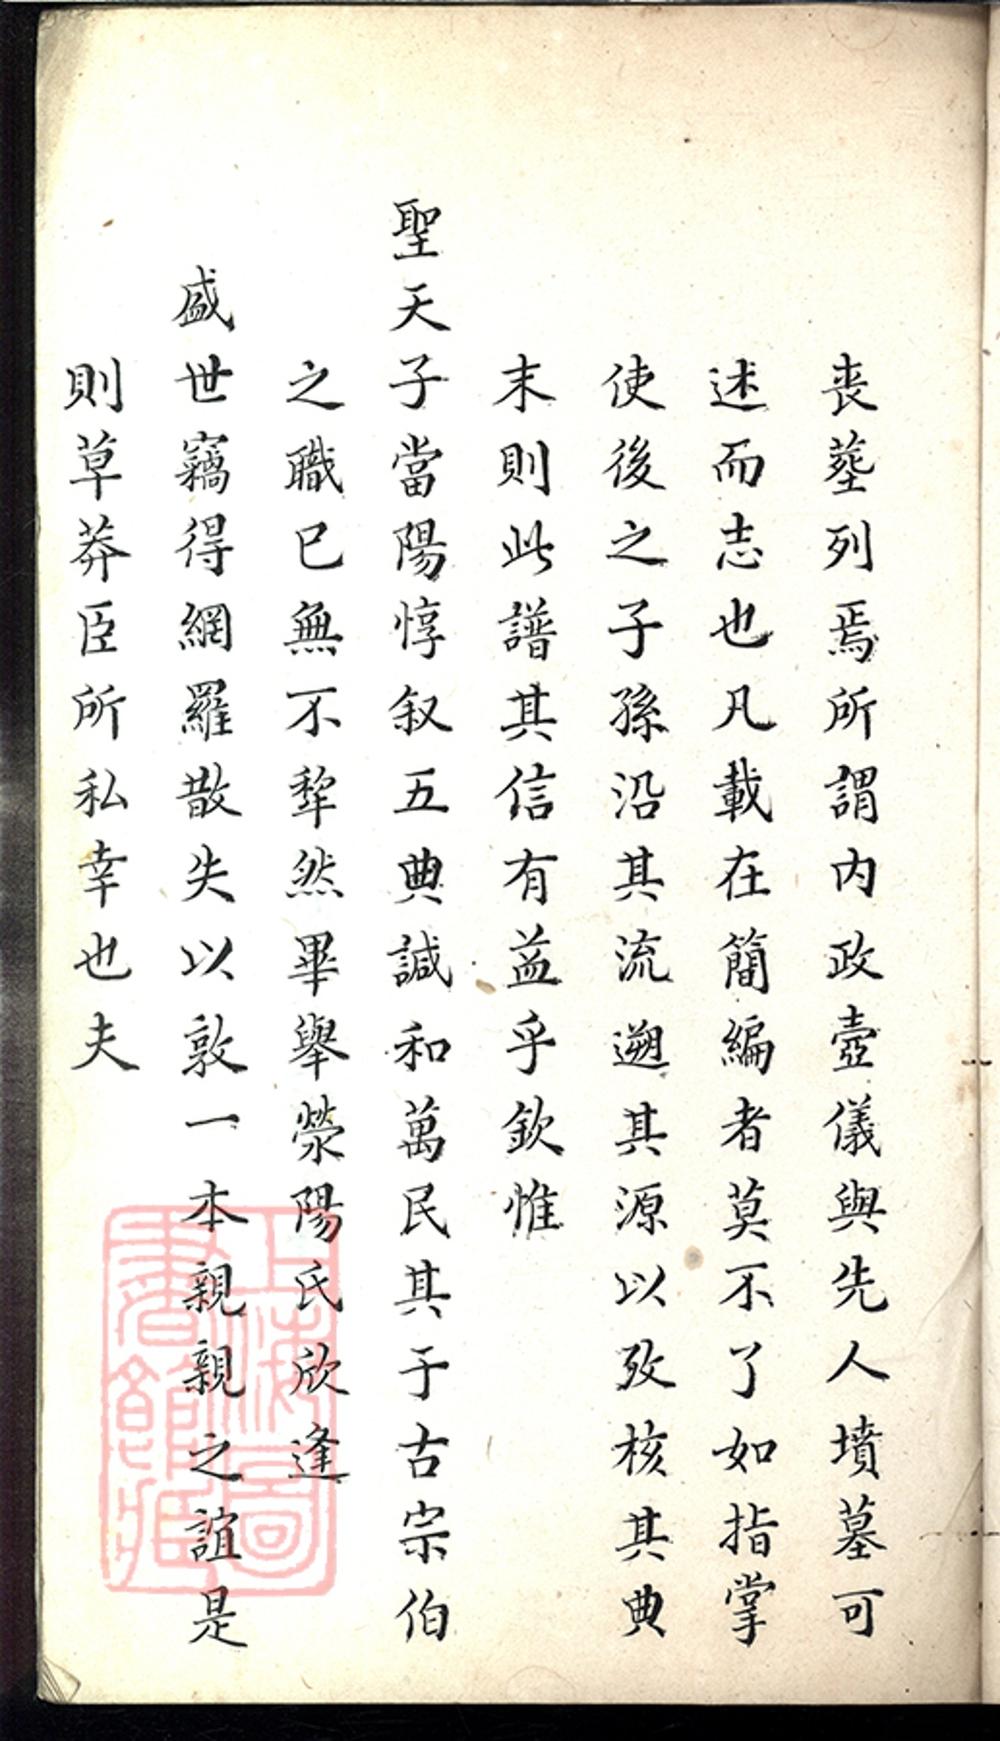 喪葬列焉所謂内政壺儀與先人墳墓可
述而志也凡載在簡編者莫不了如指掌
使後之子孫沿其流遡其源以攷核其典
末則此譜其信有益乎欽惟
聖天子當陽惇叙五典諴和萬民其于古宗伯
之職已無不犂然畢舉滎陽氏欣逢
盛世竊得網羅散失以敦一本親親之誼是
則草莽臣所私幸也夫
上海圖書館藏